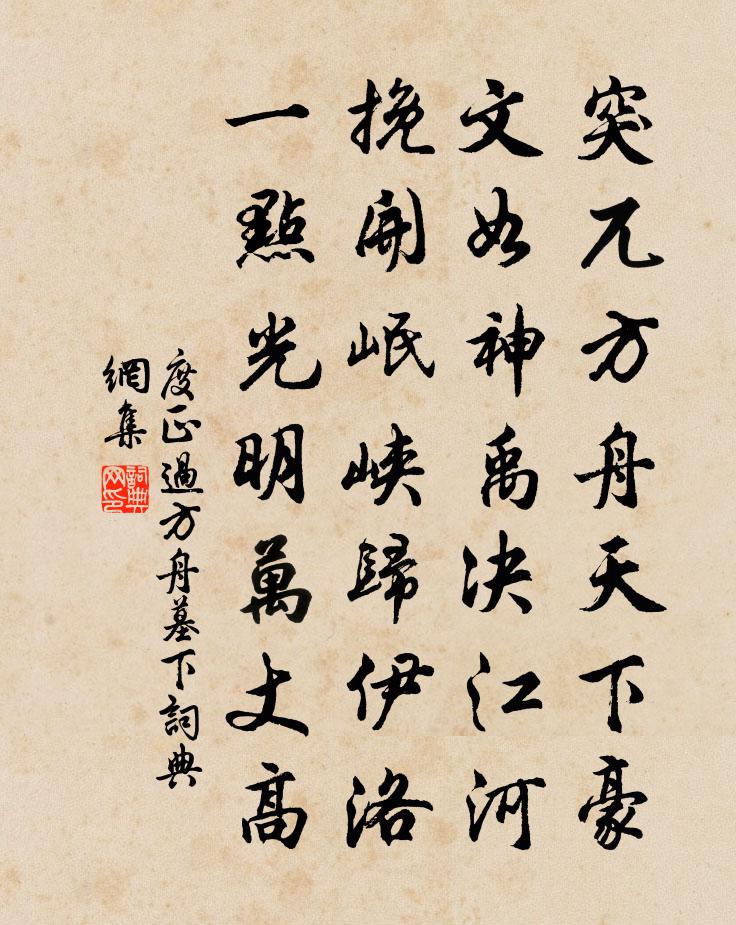 突兀方舟天下豪
文如神禹决江河
挽開岷峡歸伊洛
一點光明萬丈高
度正過方舟墓下詞典
網集
詞典
网印